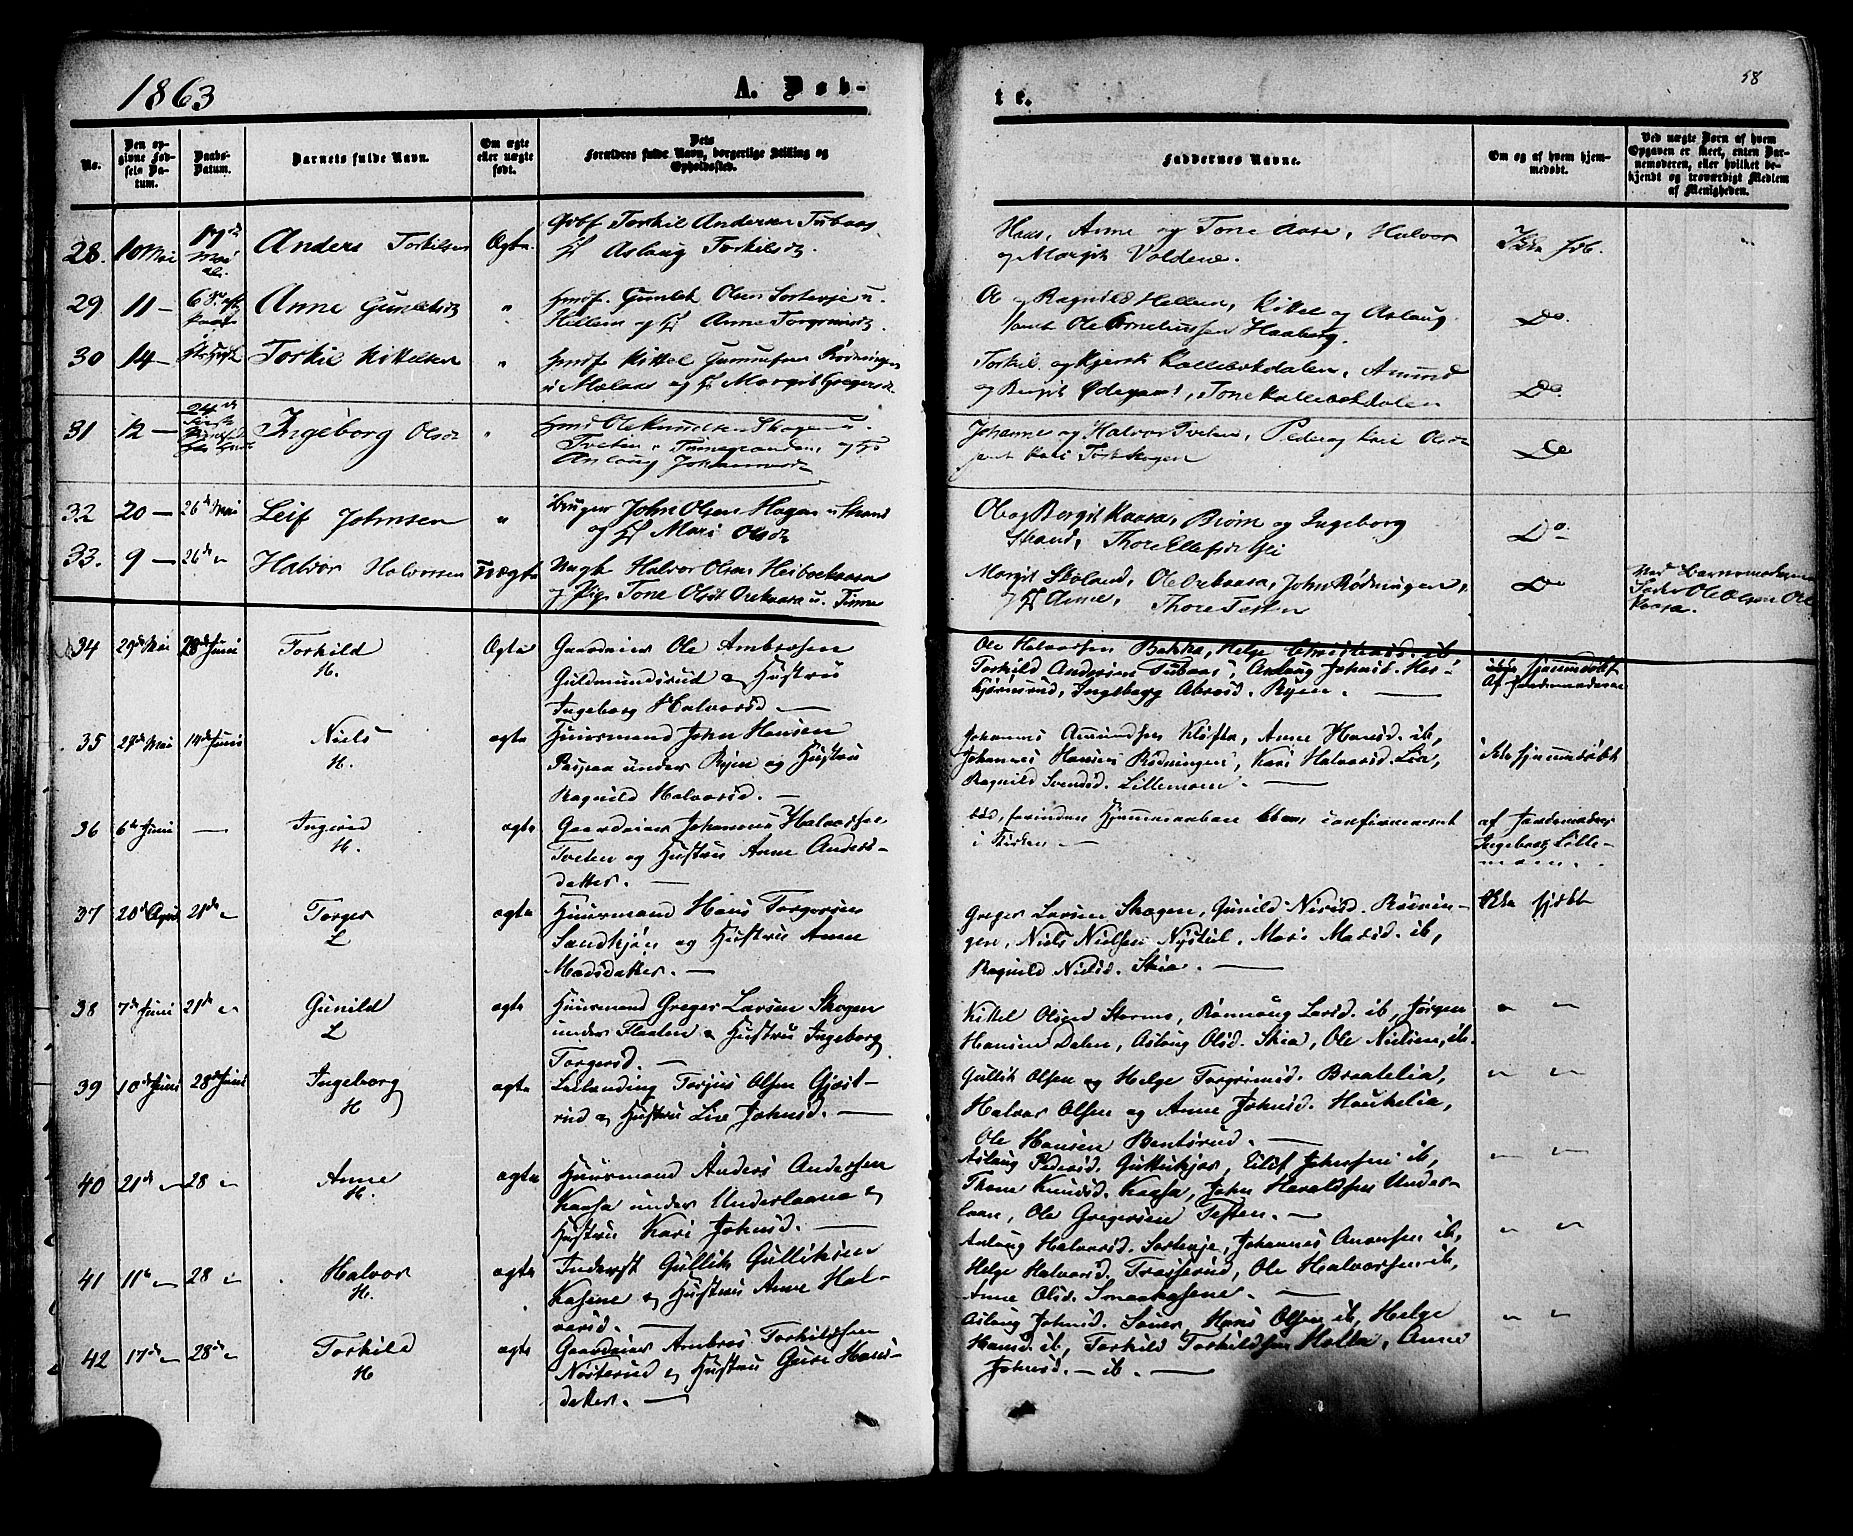 1863
A. Døb-
te.
58
No.
Den op-
givne Fød-
sels Da-
tum.
Daabs-
Datum.
Barnets fulde Navn.
Om ægte
eller uægte
født.
Dets
Forældres fulde Navn, borgerlige Stilling og
Opholdssted.
Faddernes Navne.
Om og af hvem hjem-
medøbt.
Ved uægte Børn af hvem
Opgaven er skeet, enten Bar-
nemoderen, eller hvilket be-
kjendt og troværdigt Medlem
af Menigheden.
28. 10 Mai 17de Anders Torkilsen Ægte
Torkil Andersen Tubaas
Aslaug Torkilsdt.
Hans, Anne og Tone Aase, Halvor
og Margit Voldene.
Ikke
29 11 — Anne Gunleksdt "
Gunlek Olsen Sorteje u.
Hellem og Anne Torgrimsdt
Ole og Ragnild Hellem, Kittel og Aslaug
samt Ole Corneliussen Haaberg.
Do.
30 14 — Torkil Kittelsen "
Kittel Gunnufsen Rødningen
u Molaas og Margit Gregersdt
Torkil og Kjersti Kallebækdalen, Amund
og Bergit Ødegaard, Tone Kallebækdalen
Do.
31 12 — 24de Ingeborg Olsdt "
Ole Knudsen Skogen u.
Tveten i Tinnegranden, og
Aslaug Johannesdt
Johanne og Halvor Tveten, Peder og Kari Olsdt
samt Kari Skogen
Do
32 20 — 26de Mai Leif Johnsen "
Bruger John Olsen Hagen u Strand
og Mari Olsdt
Ole og Bergit Kaasa, Biørn og Ingeborg
Strand, Thore Ellefsdt Lie
Do
33. 9 — 26de " Halvor Halvorsen Uægte
Ungk Halvor Olsen Heibøekaasa
og Pige Tone Olsdt Orekaasa u. Tinne
Margit Skoland, Ole Orekaasa, John Rødningen,
og Anne, Thore Testen
Do
Ved Barnemoderens
Fader Ole Olsen Ore
kaasa.
34 29de Mai 28de Juni Torkild
H.
Ægte
Gaardeier Ole Ambrosen
Guldmundsrud & Hustru
Ingeborg Halvorsd. —
Ole Halvorsen Bakka, Helge Christensd. ib
Torkild Andersen Tubaas, Aslaug Johnsd. Hes-
hjørnsrud, Ingeborg Abrosd. Ryen. —
hjemmedøbt
Af Jordemoderen
35 29de Mai 14de Juni Niels
H.
ægte
Huusmand John Hansen
Paspaa under Ryen og Hustru
Ragnild Halvorsd. —
Johannes Amundsen Kløfta, Anne Hansd. ib,
Johannes Hansen Rødningen, Kari Halvorsd. Lia,
Ragnild Svendsd. Lillemoen. —
ikke hjemmedøbt
36 6te Juni — Ingerid
H.
ægte
Gaardeier Johannes Halvorsen
Tveten og Hustru Anne Anders-
datter. —
død, forinden Hjemmedaaben blev confirmeret
i Kirken. —
af Jordemoder
Ingeborg Lille-
moen.
37 20de April 21de " Torger
L
ægte
Huusmand Hans Torgersen
Sandhjøn og Hustru Anne
Madsdatter. —
Greger Larsen Skogen, Gunild Nirisd. Rødnin-
gen, Niels Nielsen Nystul, Mari Marisd. ib,
Ragnild Nielsd. Skia. —
Ikke hjdøbt
38 7de Juni 21de " Gunild
L
ægte
Huusmand Greger Larsen Skogen
under Flaaten & Hustru Ingeborg
Torgersd. —
Kittel Olsen Stormo, Rønnaug Larsd. ib, Jørgen
Hansen Dalen, Aslaug Olsd. Skia, Ole Nielsen, ib.
" "
39 10de Juni 28de Juni Ingeborg
H
ægte
Leilænding Torjus Olsen Gjøst-
rud & Hustru Live Johnsd. —
Gullik Olsen og Helge Torgrimsd. Braatelia,
Halvor Olsen og Anne Johnsd. Haukelia,
Ole Hansen Bentsrud. —
" "
40 21de " 28 " Anne
H.
ægte
Huusmand Anders Andersen
Kaasa under Underlaana &
Hustru Kari Johnsd. —
Aslaug Pedersd. Guttukjær, Eilef Johnsen ib,
Thone Knudsd. Kaasa, John Haraldsen Under-
laan, Ole Gregersen Testen. —
" "
41 11te " 28 " Halvor
H.
ægte
Inderst Gullik Gulliksen
Kasene & Hustru Anne Hal-
vorsd. —
Aslaug Halvorsd. Sorteje, Johannes Anonsen ib,
Helge Halvorsd. Traaserud, Ole Halvorsen ib,
Anne Olsd. Smaakasene. —
" "
42 17de " 28de " Torkild
H
ægte
Gaardeier Ambros Torkildsen
Nøsterud & Hustru Guri Hans-
datter. —
Aslaug Johnsd. Sauer, Hans Olsen ib, Helge
Hansd. ib, Torkild Torkildsen Holta, Anne
Johnsd. — ib. —
" "